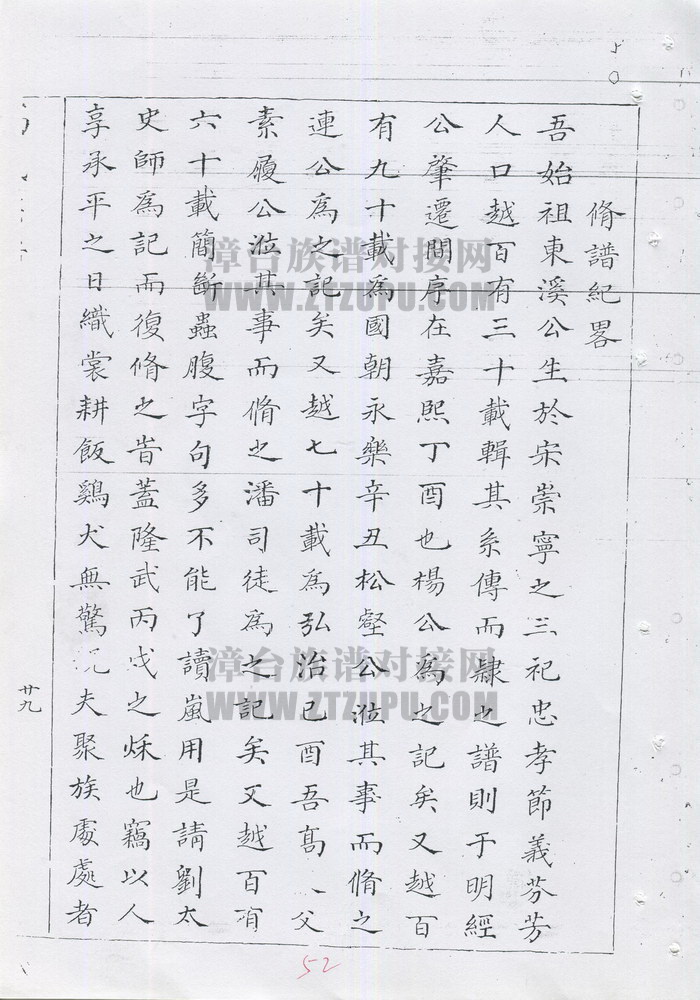 脩譜紀畧
吾始祖東溪公生於宋崇寧之三祀忠孝節義芬芳
人口越百有三十載輯其系傳而隸之譜則于明經
公肇遷閱序在嘉熙丁酉也楊公為之記矣又越百
有九十載為國朝永樂辛丑松壑公涖其事而脩之
連公為之記矣又越七十載為弘治己酉吾高〻父
素履公涖其事而脩之潘司徒為之記矣又越百有
六十載簡斷蟲腹字句多不能了讀嵐用是請劉太
史師為記而復脩之旹蓋隆武丙戌之秌也竊以人
享承平之日織裳耕飯鷄犬無驚況夫聚族處處者
廿九
52
50
漳台族谱对接网
WWW.ZTZUPU.COM
漳台族谱对接网
WWW.ZTZUPU.COM